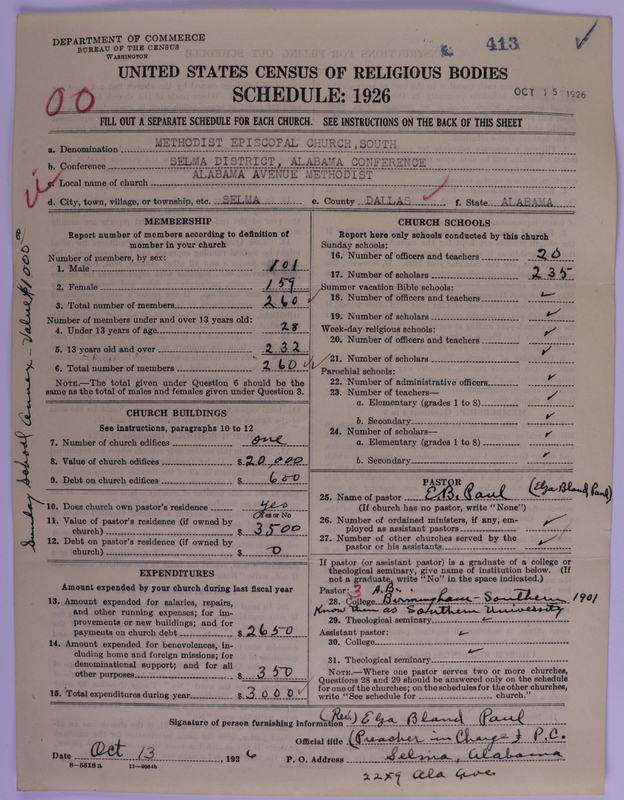 DEPARTMENT OF COMMERCE
BUREAU OF THE CENSUS
WASHINGTON
413
UNITED STATES CENSUS OF RELIGIOUS BODIES
SCHEDULE: 1926
OCT 15 1926
00
FILL OUT A SEPARATE SCHEDULE FOR EACH CHURCH. SEE INSTRUCTIONS ON THE BACK OF THIS SHEET
a. Denomination METHODIST EPISCOPAL CHURCH, SOUTH
b. Conference SELMA DISTRICT, ALABAMA CONFERENCE
c. Local name of church ALABAMA AVENUE METHODIST
d. City, town, village, or township, etc. SELMA e. County DALLAS f. State ALABAMA
MEMBERSHIP
Report number of members according to definition of
member in your church
Number of members, by sex:
1. Male 101
2. Female 159
3. Total number of members 260
Number of members under and over 13 years old:
4. Under 13 years of age 28
5. 13 years old and over 232
6. Total number of members 260
NOTE.—The total given under Question 6 should be the
same as the total of males and females given under Question 3.
CHURCH BUILDINGS
See instructions, paragraphs 10 to 12
7. Number of church edifices one
8. Value of church edifices $ 20,000
9. Debt on church edifices $ 600
10. Does church own pastor's residence? yes
Yes or No
11. Value of pastor's residence (if owned by
church) $ 3500
12. Debt on pastor's residence (if owned by
church) $ 0
EXPENDITURES
Amount expended by your church during last fiscal year
13. Amount expended for salaries, repairs,
and other running expenses; for im-
provements or new buildings; and for
payments on church debt $ 2650
14. Amount expended for benevolences, in-
cluding home and foreign missions; for
denominational support; and for all
other purposes $ 350
15. Total expenditures during year $ 3000
Sunday School Annex - Value $1000.00
CHURCH SCHOOLS
Report here only schools conducted by this church
Sunday schools:
16. Number of officers and teachers 20
17. Number of scholars 235
Summer vacation Bible schools:
18. Number of officers and teachers
19. Number of scholars
Week-day religious schools:
20. Number of officers and teachers
21. Number of scholars
Parochial schools:
22. Number of administrative officers
23. Number of teachers—
a. Elementary (grades 1 to 8)
b. Secondary
24. Number of scholars—
a. Elementary (grades 1 to 8)
b. Secondary
PASTOR
25. Name of pastor E.B. Paul (Elza Bland Paul)
(If church has no pastor, write "None")
26. Number of ordained ministers, if any, em-
ployed as assistant pastors
27. Number of other churches served by the
pastor or his assistants
If pastor (or assistant pastor) is a graduate of a college or
theological seminary, give name of institution below. (If
not a graduate, write "No" in the space indicated.)
Pastor: 3 A.B.
28. College Birmingham-Southern 1901
Know then as Southern University
29. Theological seminary
Assistant pastor:
30. College
31. Theological seminary
NOTE.—Where one pastor serves two or more churches,
Questions 28 and 29 should be answered only on the schedule
for one of the churches; on the schedules for the other churches,
write "See schedule for church."
Signature of person furnishing information (Rev.) Elza Bland Paul
Official title (Preacher in Charge & P.C.
Date Oct 13, 1926 P. O. Address Selma, Alabama
8—5518a 11—9084b
2229 Ala Ave.